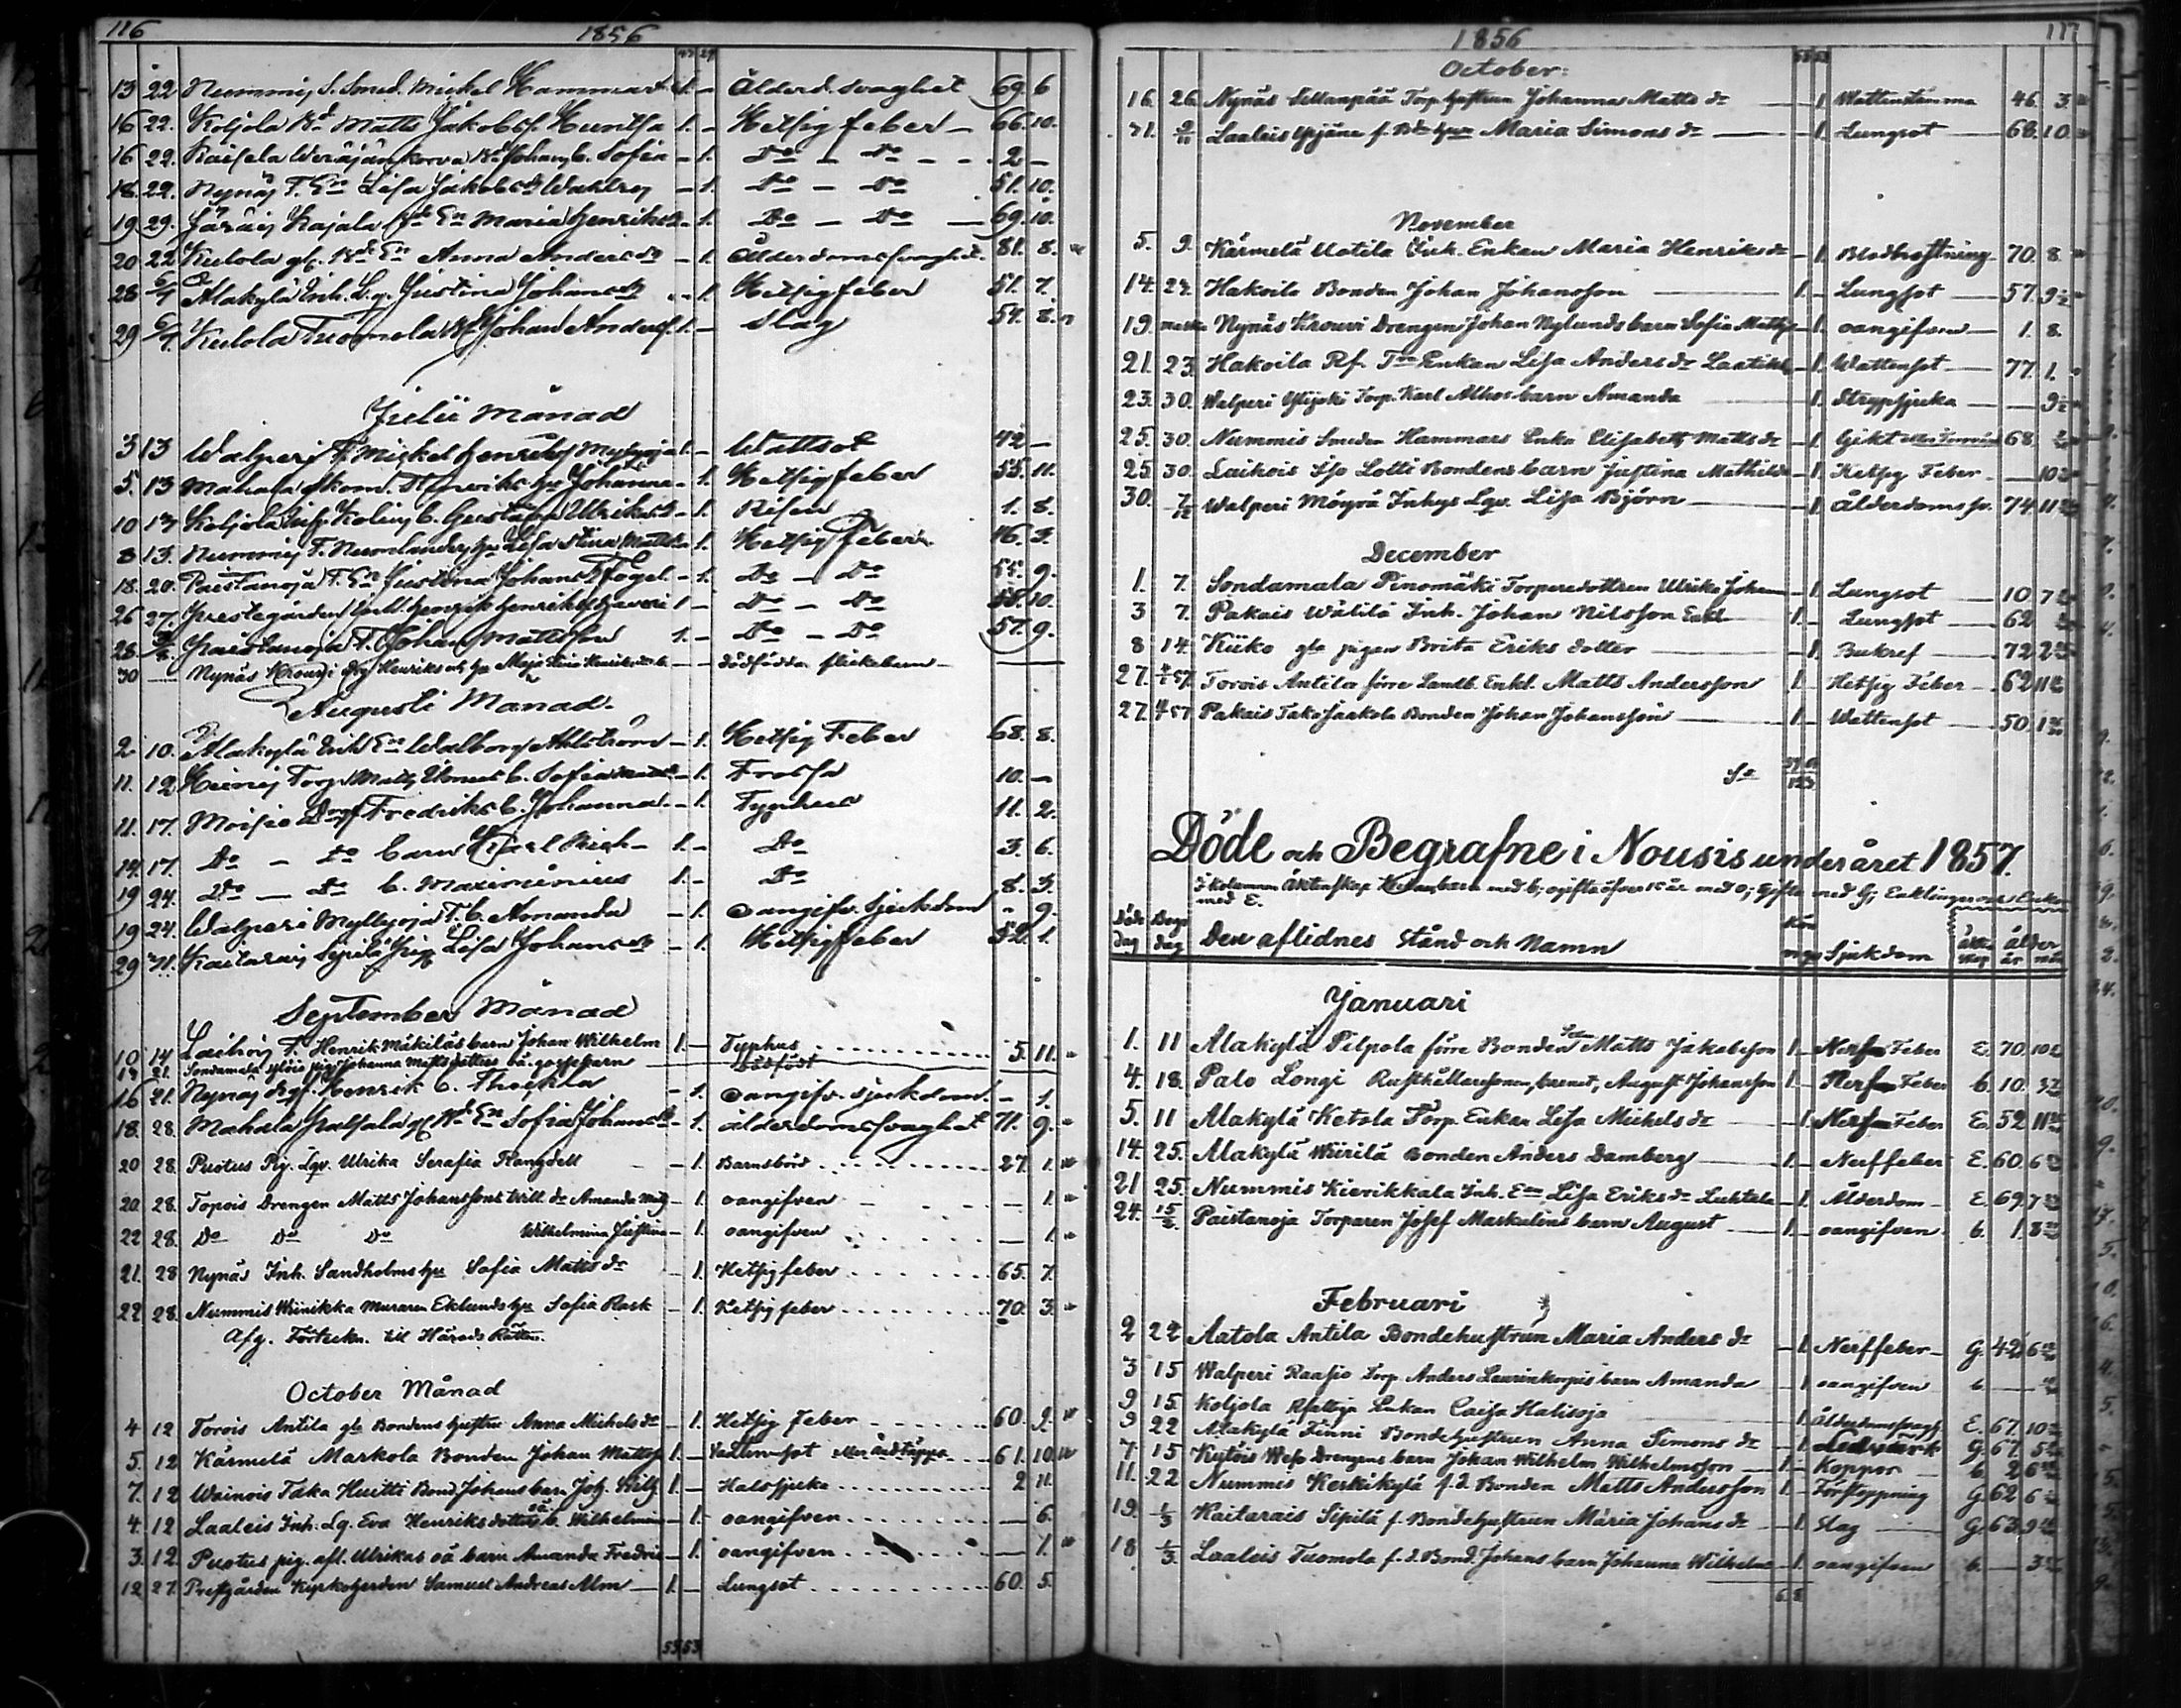 116
1856
13 22 Nummis S. Smed. Mickel Hammar 1. – Ålderd. svaghet 69. 6
16 22. Koljola Bd Matts Jakobss. Huntsa 1. – Hetsig feber – 66. 10.
16 22. Kaisela Johans b. Sofia – 1. Do – Do – 2 –
18. 22. Nynäs T. En Lisa Jakobsdr Wahlroos – 1. Do – Do 51. 10.
19. 29. Järäis Kajala Bd En Maria Henriksdr – 1. Do – Do – 69. 10.
20 22 Kulola gl. Bd En Anna Andersdr – 1. Ålderdomssvaghet 81. 8.
28 6/7 Alakylä Inh. L.g. Justina Johansdr – 1. Hetsig feber 51. 7.
29 6/7. Kulola Tuomola Bd Johan Anderss. 1. – Slag 54. 8.
Julii Månad
3 13 Walperi T. Mickel Henrikss. Myllyoja 1. – Wattsot 42 –
5. 13 Mahala Johanna – 1. Hetsigfeber 55. 11.
10 13 Koljola b. Gustava Ulrika – 1. Risen 1. 8.
8 13. Nummis T. hu Lisa Stina Mattsdr – 1. Hetsig Feber 46. 3.
18. 20. Paistanoja T. En Justina Johansdr Fogel – 1. Do – Do 55. 9.
26 27. Prestegården Henrik Henrikss. 1 – Do – Do 58. 10.
28. Paistanoja T. Johan Mattsson 1. – Do – Do 57. 9.
30 – Nynäs Krouvi Maja Stina – – dödfödda flickebarn –
Augusti Månad.
2 10. Alakylä Inh. En Walborg Ahlström – 1. Hetsig Feber 68. 8.
11. 12 Torp. Matts b. Sofia – 1. Frossa 10. –
11. 17. Moisio Fredriks b. Johanna – 1. Typhus 11. 2.
14. 17. Do – Do barn Karl 1. – Do 3. 6.
19 24. Do – Do b. Maximinius 1. – Do 8. 3.
19 24. Walperi Myllyoja T. b. Amanda – 1. oangifv. sjukdom – 9.
29 31. Kaitarais Sipilä Pig. Lisa Johansdr – 1. Hetsigfeber 52. 1.
September Månad
10 14 Laihois T. Henrik Mäkiläs barn Johan Wilhelm 1. – Typhus 5. 11.
19 21. Sondamala pig. Johanna Mattsdotters oä. gossebarn Dödfödt
16 21. Nynäs Henrik b. Thekla – 1. oangifv. sjukdom. – 1.
18. 28. Mahala gl. Bd En Sofia Johansdr – 1. ålderdomssvaghet 71. 9.
20 28. Puotus Pig. Lgv. Ulrika Serafia Rangdell – 1. Barnsbörd 27. 1.
20. 28. Topois Drengen Matts Johanssons tvill. dr Amanda – 1. oangifven – 1.
22 28. Do Do Do Wilhelmina Justina – 1. oangifven – 1.
21. 28 Nynäs Inh. Sandholms hu Sofia Mattsdr – 1. Hetsigfeber 65. 7.
22 28. Nummis Wiinikka Muraren Eklunds hu Sofia Rask – 1. Hetsig feber 70. 3.
Afg. Förteckn. till Härads Rätten.
October Månad
4 12 Torois Antila gla Bondens hustru Anna Michelsdr – 1. Hetsig Feber 60. 9.
5. 12 Kärmelä Markola Bonden Johan Mattss 1. – Vattensot eller Andtäppa 61. 10.
7. 12 Wainois Taka Huitti Bond. Johans barn Joh. Wilh 1. – Halssjuka 2 11.
4. 12 Laaleis Inh. Lg. Eva Henriksdotters oä b. Wilhelmina – 1. oangifven – 6.
3. 12. Puotus pig. afl. Ulrikas oä barn Amanda Fredrica – 1. oangifven – 1.
12. 27. Prestgården Kyrkoherden Samuel Andreas Alm – 1. – Lungsot 60. 5.
53 53
1856
117
October:
16. 26. Nynäs Sillanpää Torp. hustrun Johanna Matts dr – 1. Wattenstämma 46. 3.
31. 9/11 Laaleis Yrjäna f. Bde hun Maria Simons dr – 1. Lungsot 68. 10
November
5. 9. Kärmelä Uotila Inh. Enkan Maria Henriksdr – 1. Blodhostning 70. 8.
14. 24. Hakoila Bonden Johan Johansson 1. – Lungsot 57. 9
19. Nynäs Krouvi Drengen Johan Nylunds barn Sofia Mathilda – 1. oangifven 1. 8.
21. 23. Hakoila Rf. Enkan Lisa Anders dr – 1. Wattensot 77. 1.
23. 30. Walperi Ylijoki Torp. Karl Alhos barn Amanda – 1. Strypsjuka – 9
25. 30. Nummis Smeden Hammars Enka Elisabeth Matts dr – 1. Gikt 68
25 30. Laikois Iso Lotti Bondens barn Justina Mathilda – 1. Hetsig Feber – 10
30. 7/12 Walperi Möyrä Inhys Lgv. Lisa Björn – 1. Ålderdoms sv. 74 11
December
1. 7. Sondamala Pinomäki Torparedottren Ulrika Johans – 1. Lungsot 10 7
3 7. Pakais Wälilä Inh. Johan Nilsson Enkl. 1. – Lungsot 62
8 14. Kiiko gla pigan Brita Eriks dotter – 1. Bukref 72 2
27. 4/1 57. Torois Antila förre Landb. Enkl. Matts Andersson 1 – Hetsig Feber 62 11
27. 4 57 Pakais Taka Jaakola Bonden Johan Johansson 1. – Wattensot 50 1
Sa 123
Döde och Begrafne i Nousis under året 1857.
I kolumnen Äktenskap barn med b; ogifte öfver 15 år med o; Gifte med G; Enklingar och Enkor
med E.
Döds Begr Kön
dag dag Den aflidnes Stånd och Namn m q Sjukdom äkten skap ålder år mån
Januari
1. 11 Alakylä Pilpola förre Bonden Matts Jakobsson 1 – Nerf Feber E. 70. 10
4. 18. Palo Longi Rusthållaresonen, barnet, August Johansson 1 – Nerf Feber b. 10. 3
5. 11 Alakylä Ketola Torp. Enkan Lisa Michels dr – 1. Nerf Feber E. 52 11
14. 25. Alakylä Wiirilä Bonden Anders Damberg 1. – Nerffeber E. 60 6
21 25. Nummis Kierikkala Inh. En Lisa Eriks dr Luhtala – 1. Ålderdom – E. 69. 7
24. 15/2. Paistanoja Torparen Josef Maskulins barn August 1. – oangifven b. 1. 8
Februari
2 22 Aatola Antila Bondehustrun Maria Anders dr – 1. Nerffeber – G. 42 6
3 15 Walperi Raasio Torp. Anders Laurinkorpis barn Amanda – 1 oangifven b. –
9 15. Koljola Enkan Caisa Halisoja 1. Ålderdomssvagh. E. 67. 10
9 22 Alakylä Finni Bondehustrun Anna Simons dr – 1. Ledvärk G. 67. 5
7. 15 Kytöis Drengens barn Johan Wilhelm Wilhelmsson 1 – Koppor b. 2 6
11. 22 Nummis Keskikylä f.d. Bonden Matts Andersson 1 – Förstoppning G. 62 6
19. 1/3 Kaitarais Sipilä f. Bondehustrun Maria Johans dr – 1. Slag G. 63. 9
18 1/3. Laaleis Tuomola f.d. Bond. Johans barn Johanna Wilhelmina – 1 oangifven b. – 3
6 8